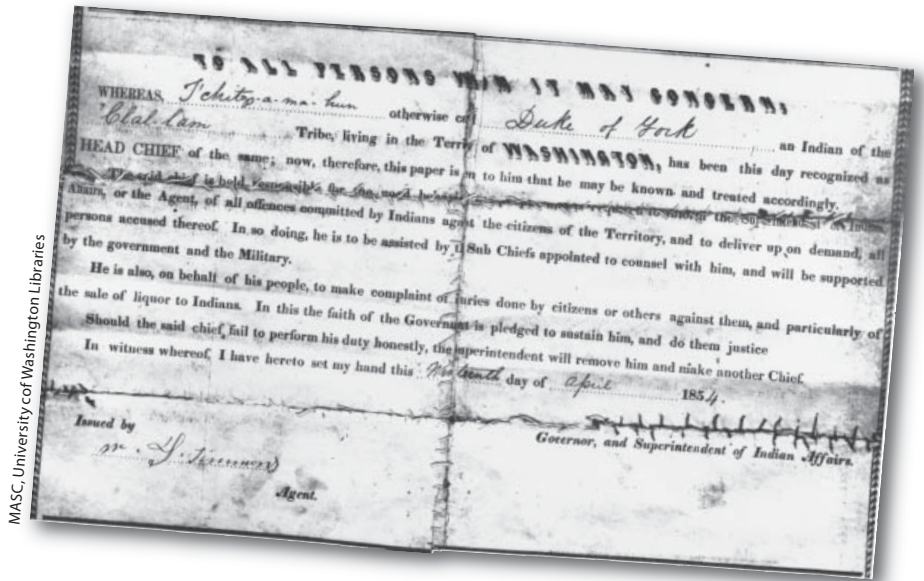 TO ALL PERSONS WHOM IT MAY CONCERN:
WHEREAS, T'chitsa-a-ma-hun otherwise Duke of York an Indian of the
Clal-lam Tribe, living in the Territ of WASHINGTON, has been this day recognized as
HEAD CHIEF of the same; now, therefore, this paper is n to him that he may be known and treated accordingly.
The said chief is held responsible for the good report to the Superintendent of Indian
Affairs, or the Agent, of all offences committed by Indians against the citizens of the Territory, and to deliver up on demand, all
persons accused thereof. In so doing, he is to be assisted by Sub Chiefs appointed to counsel with him, and will be supported
by the government and the Military.
He is also, on behalf of his people, to make complaint of juries done by citizens or others against them, and particularly of
the sale of liquor to Indians. In this the faith of the Government is pledged to sustain him, and do them justice
Should the said chief, fail to perform his duty honestly, the superintendent will remove him and make another Chief.
In witness whereof, I have hereto set my hand this day of April 1854.
Issued by
m. Simmons
Agent.
Governor, and Superintendent of Indian Affairs.
MASC, University cof Washington Libraries